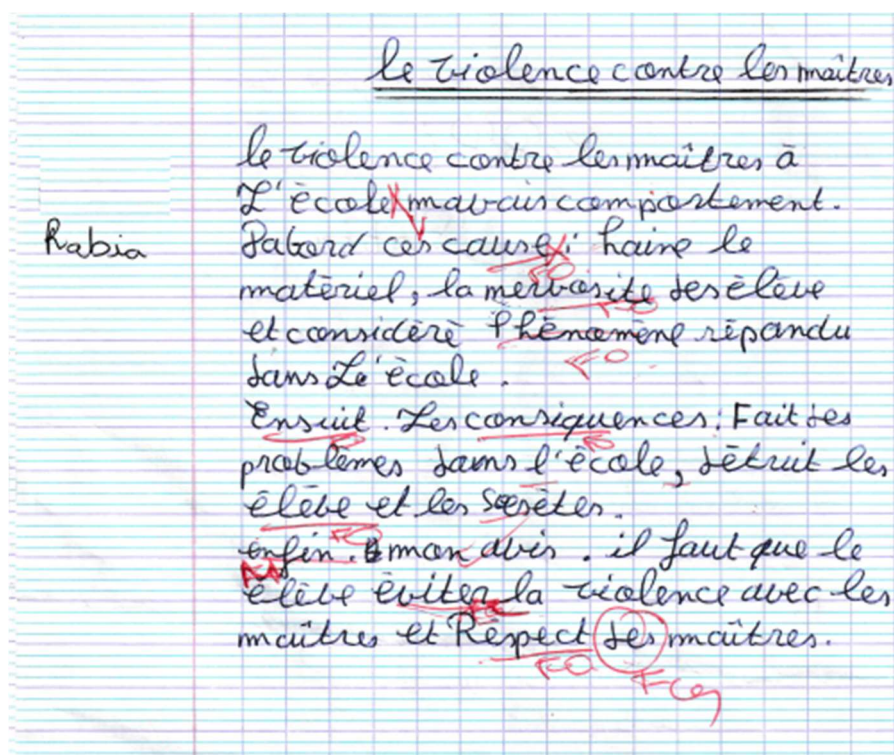 le violence contre les maîtres
le violence contre les maîtres à
L'école mavais comportement.
Rabia
Dabord ces cause : haine le
matèriel, la nervosite des élève
et considèrè Phènomène rèpandu
dans Le'école.
Ensuit. Les consiquences : Fait des
problèmes dans l'école, dètruit les
élève et les Socsètès.
enfin. mon avis. il faut que le
élève èviter la violence avec les
maîtres et Rèspect des maîtres.